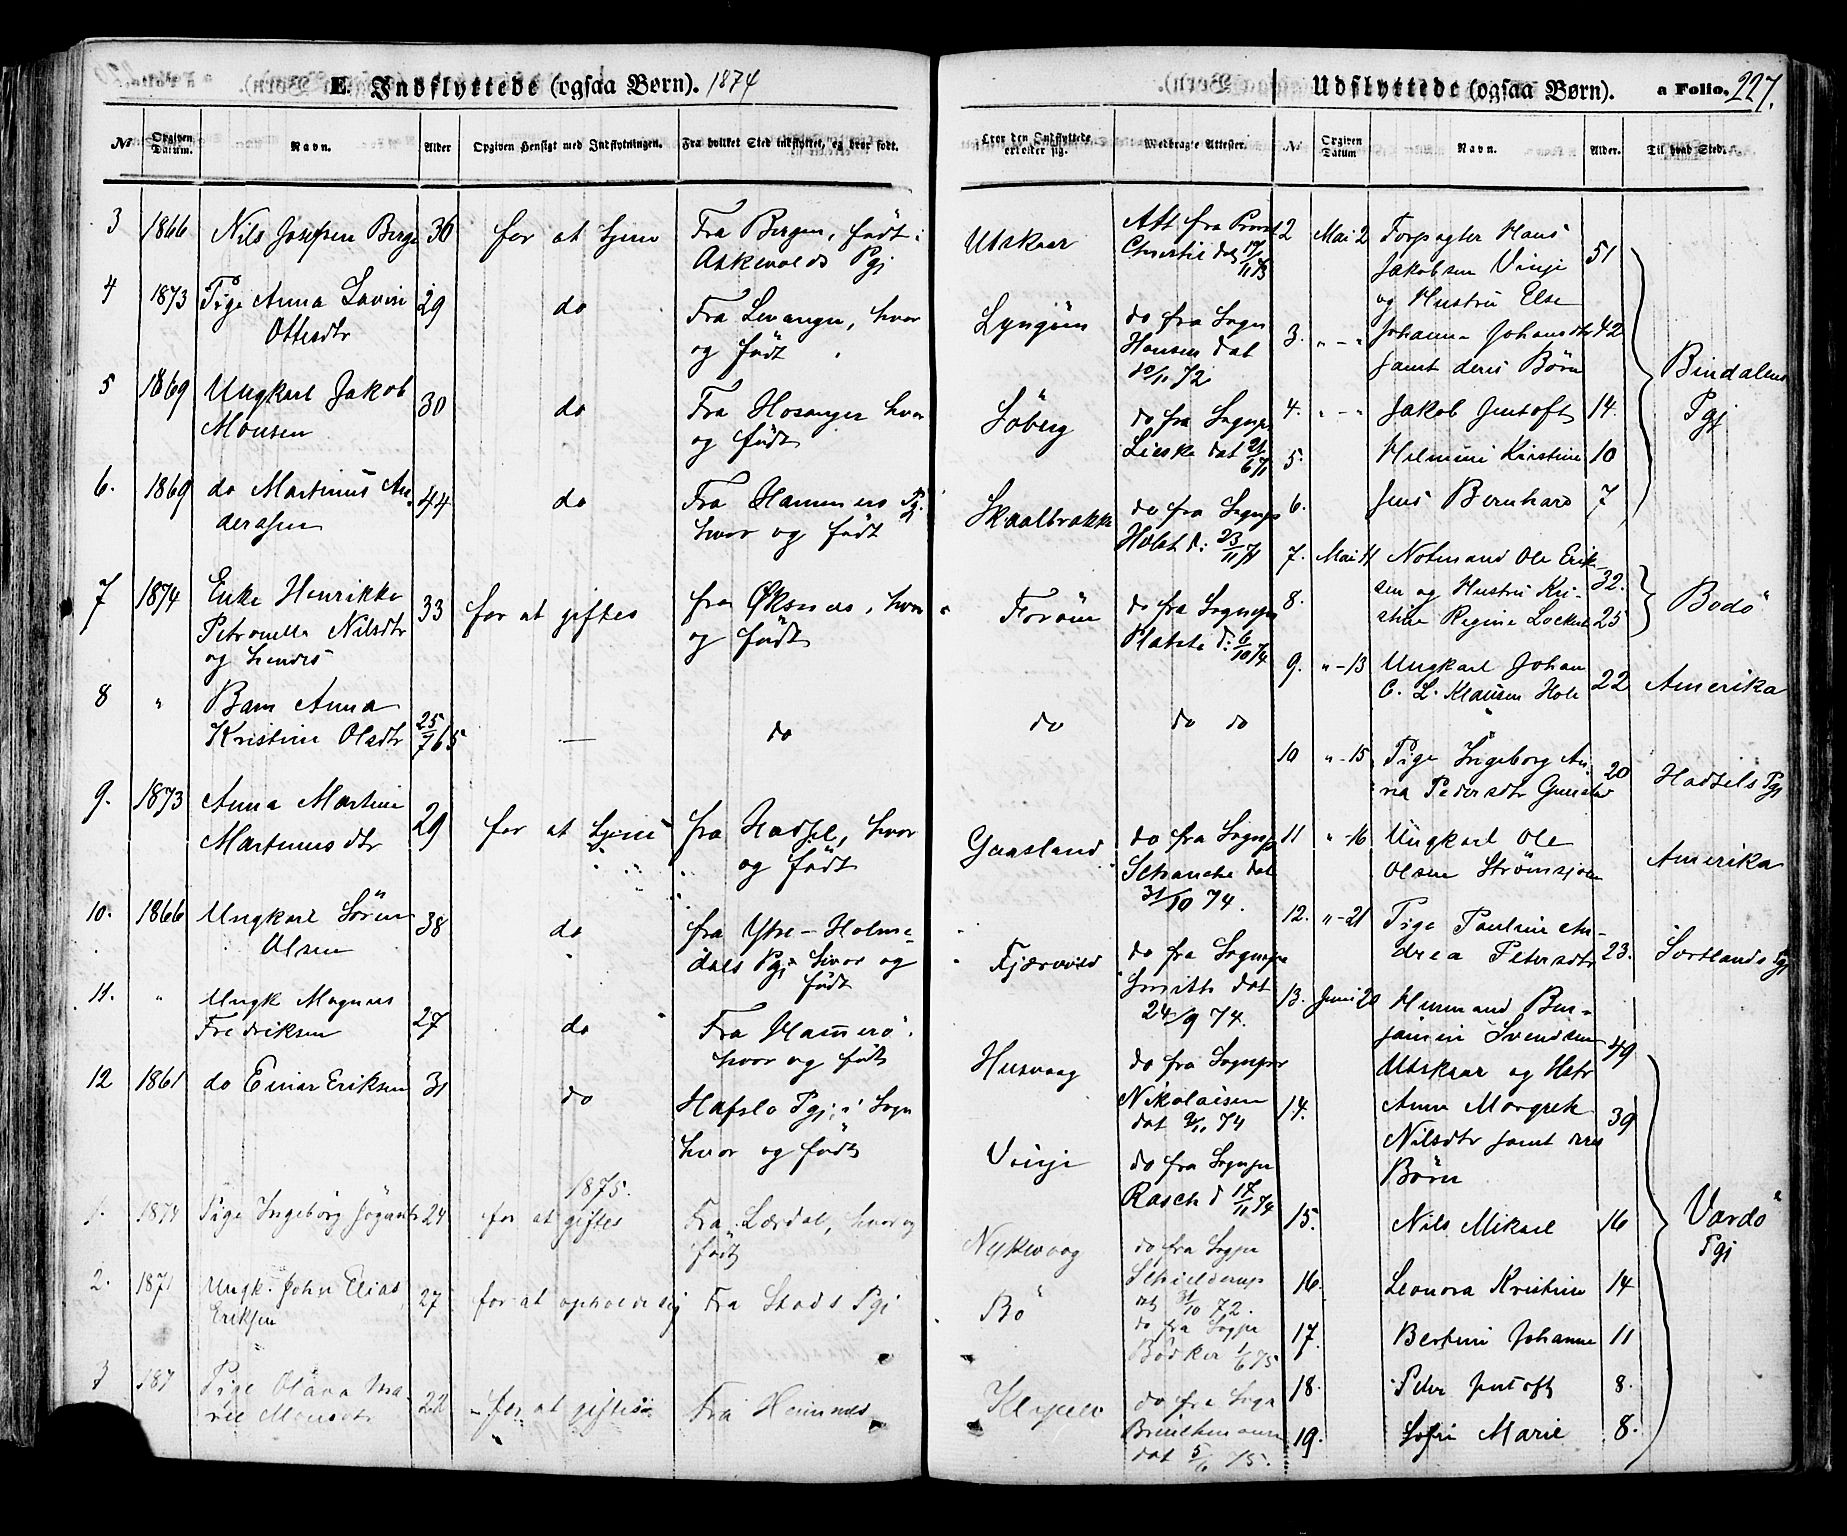 E. Indflyttede (ogsaa Børn). 1874
Udflyttede (ogsaa Børn). a Folio. 227.
№ Opgiven Datum. Navn. Alder Opgiven Hensigt med Indflytningen. Fra hvilket Sted indflyttet, og hvor født.
Hvor den Indflyttede erholder sig. Medbragte Attester. № Opgiven Datum Navn. Alder. Til hvad Sted.
3 1866 Nils Josefsen Berge 36 for at tjene Fra Bergen, født i
Askevolds Pgj
4 1873 Pige Anna Lovise 29 do Fra Levanger, hvor
Ottesdtr og født
5 1869 Ungkarl Jakob 30 do Fra Hosanger hvor
Monsen og født
6. 1869 do Martinus An- 44 do Fra Hammers Pgj.
dersen hvor og født
7 1874 Enke Henrikke 33 for at giftes fra Øksnes, hvor
Petronella Nilsdtr og født
og hendes
8 " Barn Anna
Kristine Olsdtr 25/7 65 — do
9. 1873 Anna Martine 29 for at tjene fra Hadsel, hvor
Martinusdtr og født
10. 1866 Ungkarl Sören 38 do fra Ytre-Holme-
Olsen dals Pgj. hvor og
født
11. " Ungk Magnus
Fredriksen 27 do Fra Hamerö
hvor og født
12 1861 do Einar Eriksen 31 do Hafslo Pgj. i Sogn
hvor og født
1875.
1. 1874 Pige Ingeborg 24 for at giftes Fra Lærdal, hvor og
født
2. 1871 Ungk. John Elias 27 for at opholde sig Fra Stods Pgj
Eriksen
3 187 Pige Olava Ma- 22 for at giftes Fra Hemnes
rie Monsdtr
Utskaar Att fra Provst
Christie dat 17/11 73
Lyngöen do fra Sogn
Hansen dat
20/11 72
Söberg do fra Sognepr
dat 21/6 71
Skaalbrække do fra Sognepr
Holst d: 23/11 71
Foröen do fra Sognepr
d: 6/10 74
do do do
Gaasland do fra Sognepr
Schanche dat
31/10 74.
Fjærvold do fra Sognepr
Smith dat
24/9 74.
Husvaag do fra Sognepr
Nikolaisen
dat 9/11 74
Vinje do fra Sognepr
Rasch d 17/11 74
Nykvaag do fra Sogpr
Schielderup
31/10 72.
Bö do fra Sogpr
Bödker 1/6 75
do fra Sogn
dat 5/ 75.
2 Mai 2 Forpagter Hans 51
Jakobsen Vinje
og Hustru Else
3. " - " Johanna Johansdtr 42
samt deres Börn
4. " - " Jakob Justoft 14.
5. Helmine Kirstine 10
6. Jens Bernhard 7
Bindalens
Pgj
7. Mai 11 Notmand Ole Erik- 32.
8. sen og Hustru Kri-
stine Regine Lockert 25
Bodö
9. " - 13 Ungkarl Johan 22 Amerika
C. L. Klausen Hole
10 " - 15 Pige Ingeborg An- 20 Hadsels Pgj
na Pedersdtr
11 " - 16 Ungkarl Ole Amerika
Olsen Strömsjoen
12. " - 21 Pige Pauline An-
drea Petersdtr 23. Sortlands Pgj
13. Juni 20 Husmand Ben-
jamin Svendsen 49
Utskaar og Hstr
14. Anne Margrete 39
Nilsdtr samt deres
Börn
15. Nils Mikael 16
16. Leonora Kristine 14
17. Bertine Johanne 11
18. Peter Justoft 8.
19. Sofie Marie 8.
Vardö
Pgj